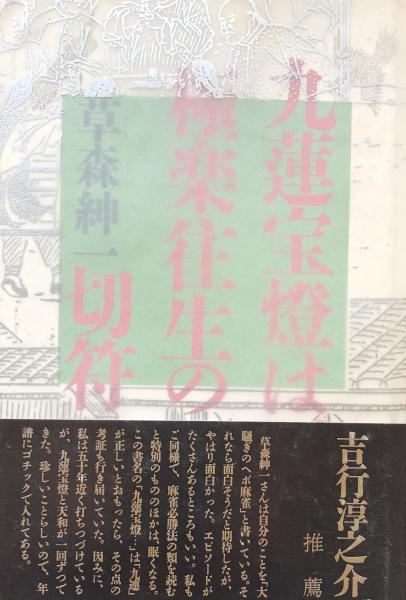 九蓮宝燈は、
極楽往生の
切符
草森紳一
吉行淳之介
推薦
草森紳一さんは自分のことを「大
騒ぎのヘボ麻雀」と書いている。そ
れなら面白そうだと期待したが、
やはり面白かった。エピソードが
たくさんあるところもいい。私も
ご同様で、麻雀必勝法の類を読む
と特別のもののほかは、眠くなる。
この書名の「九蓮宝燈…」は「九連」
が正しいとおもったら、その点の
考証も行き届いていた。因みに、
私は五十年近く打ちつづけている
が、九蓮宝燈と天和が一回ずつで
きた。珍しいことらしいので、年
譜にゴチックで入れてある。